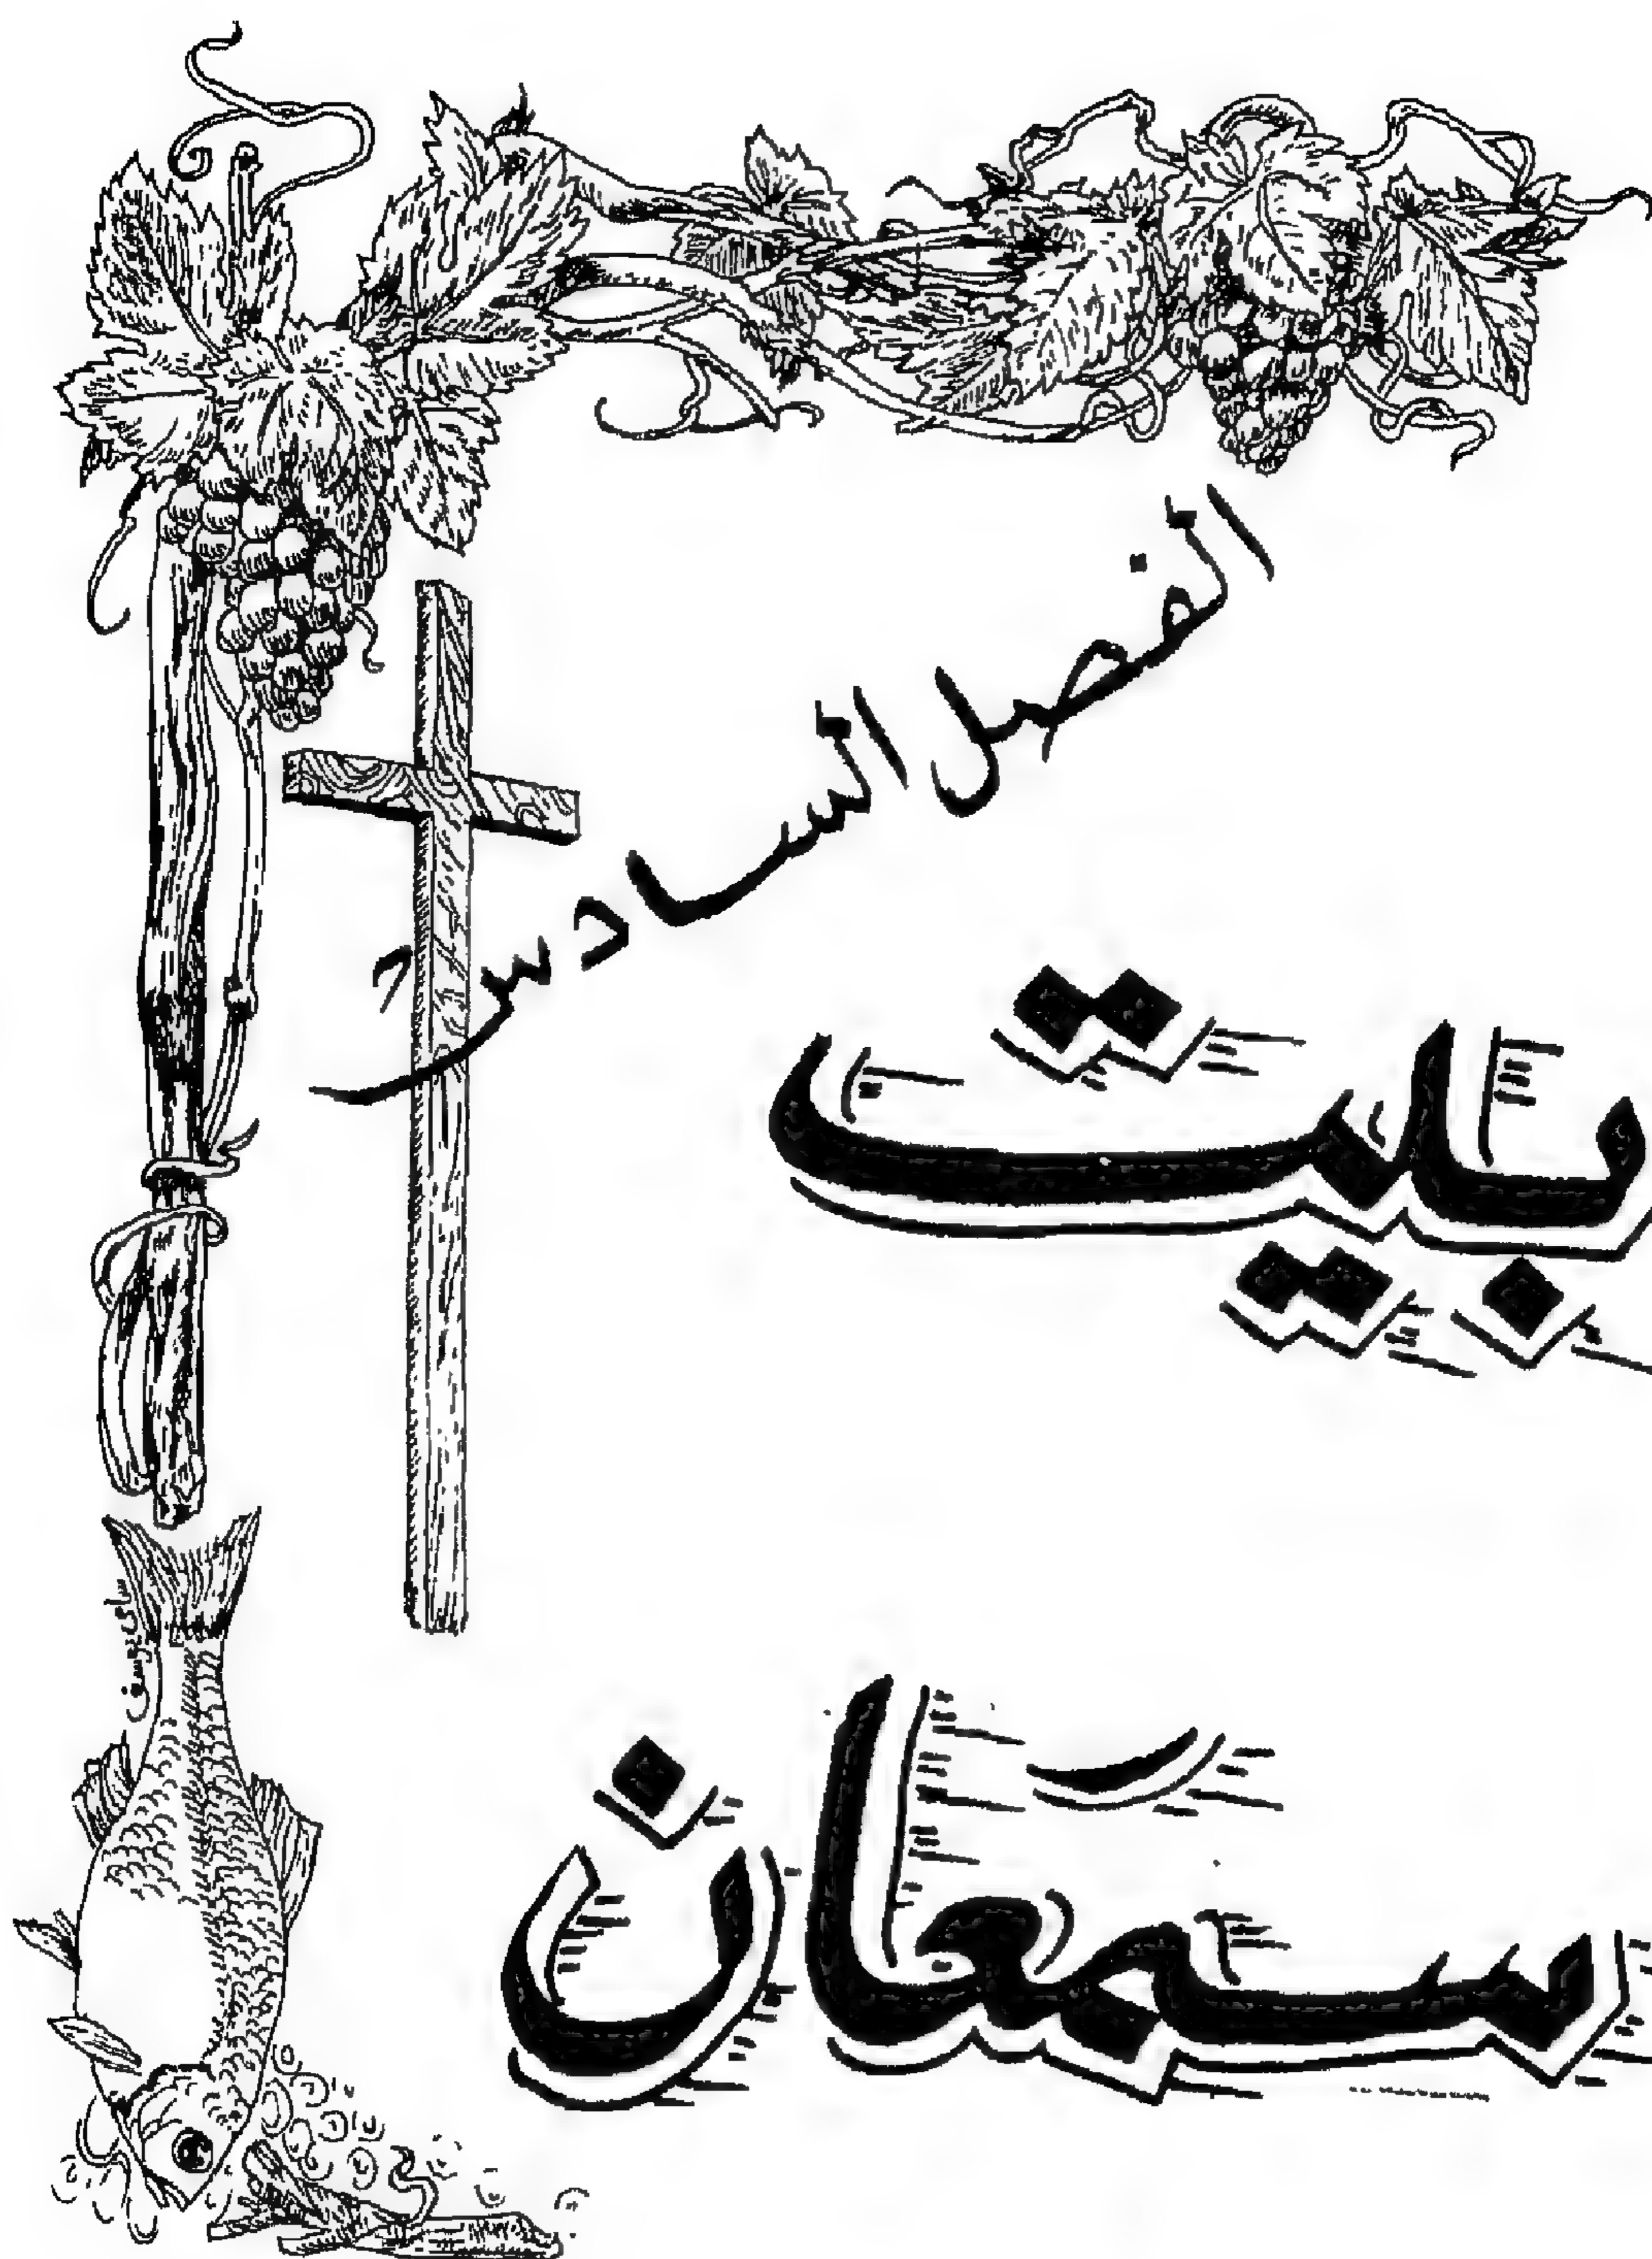 الفصل السادس
بيت
سمعان